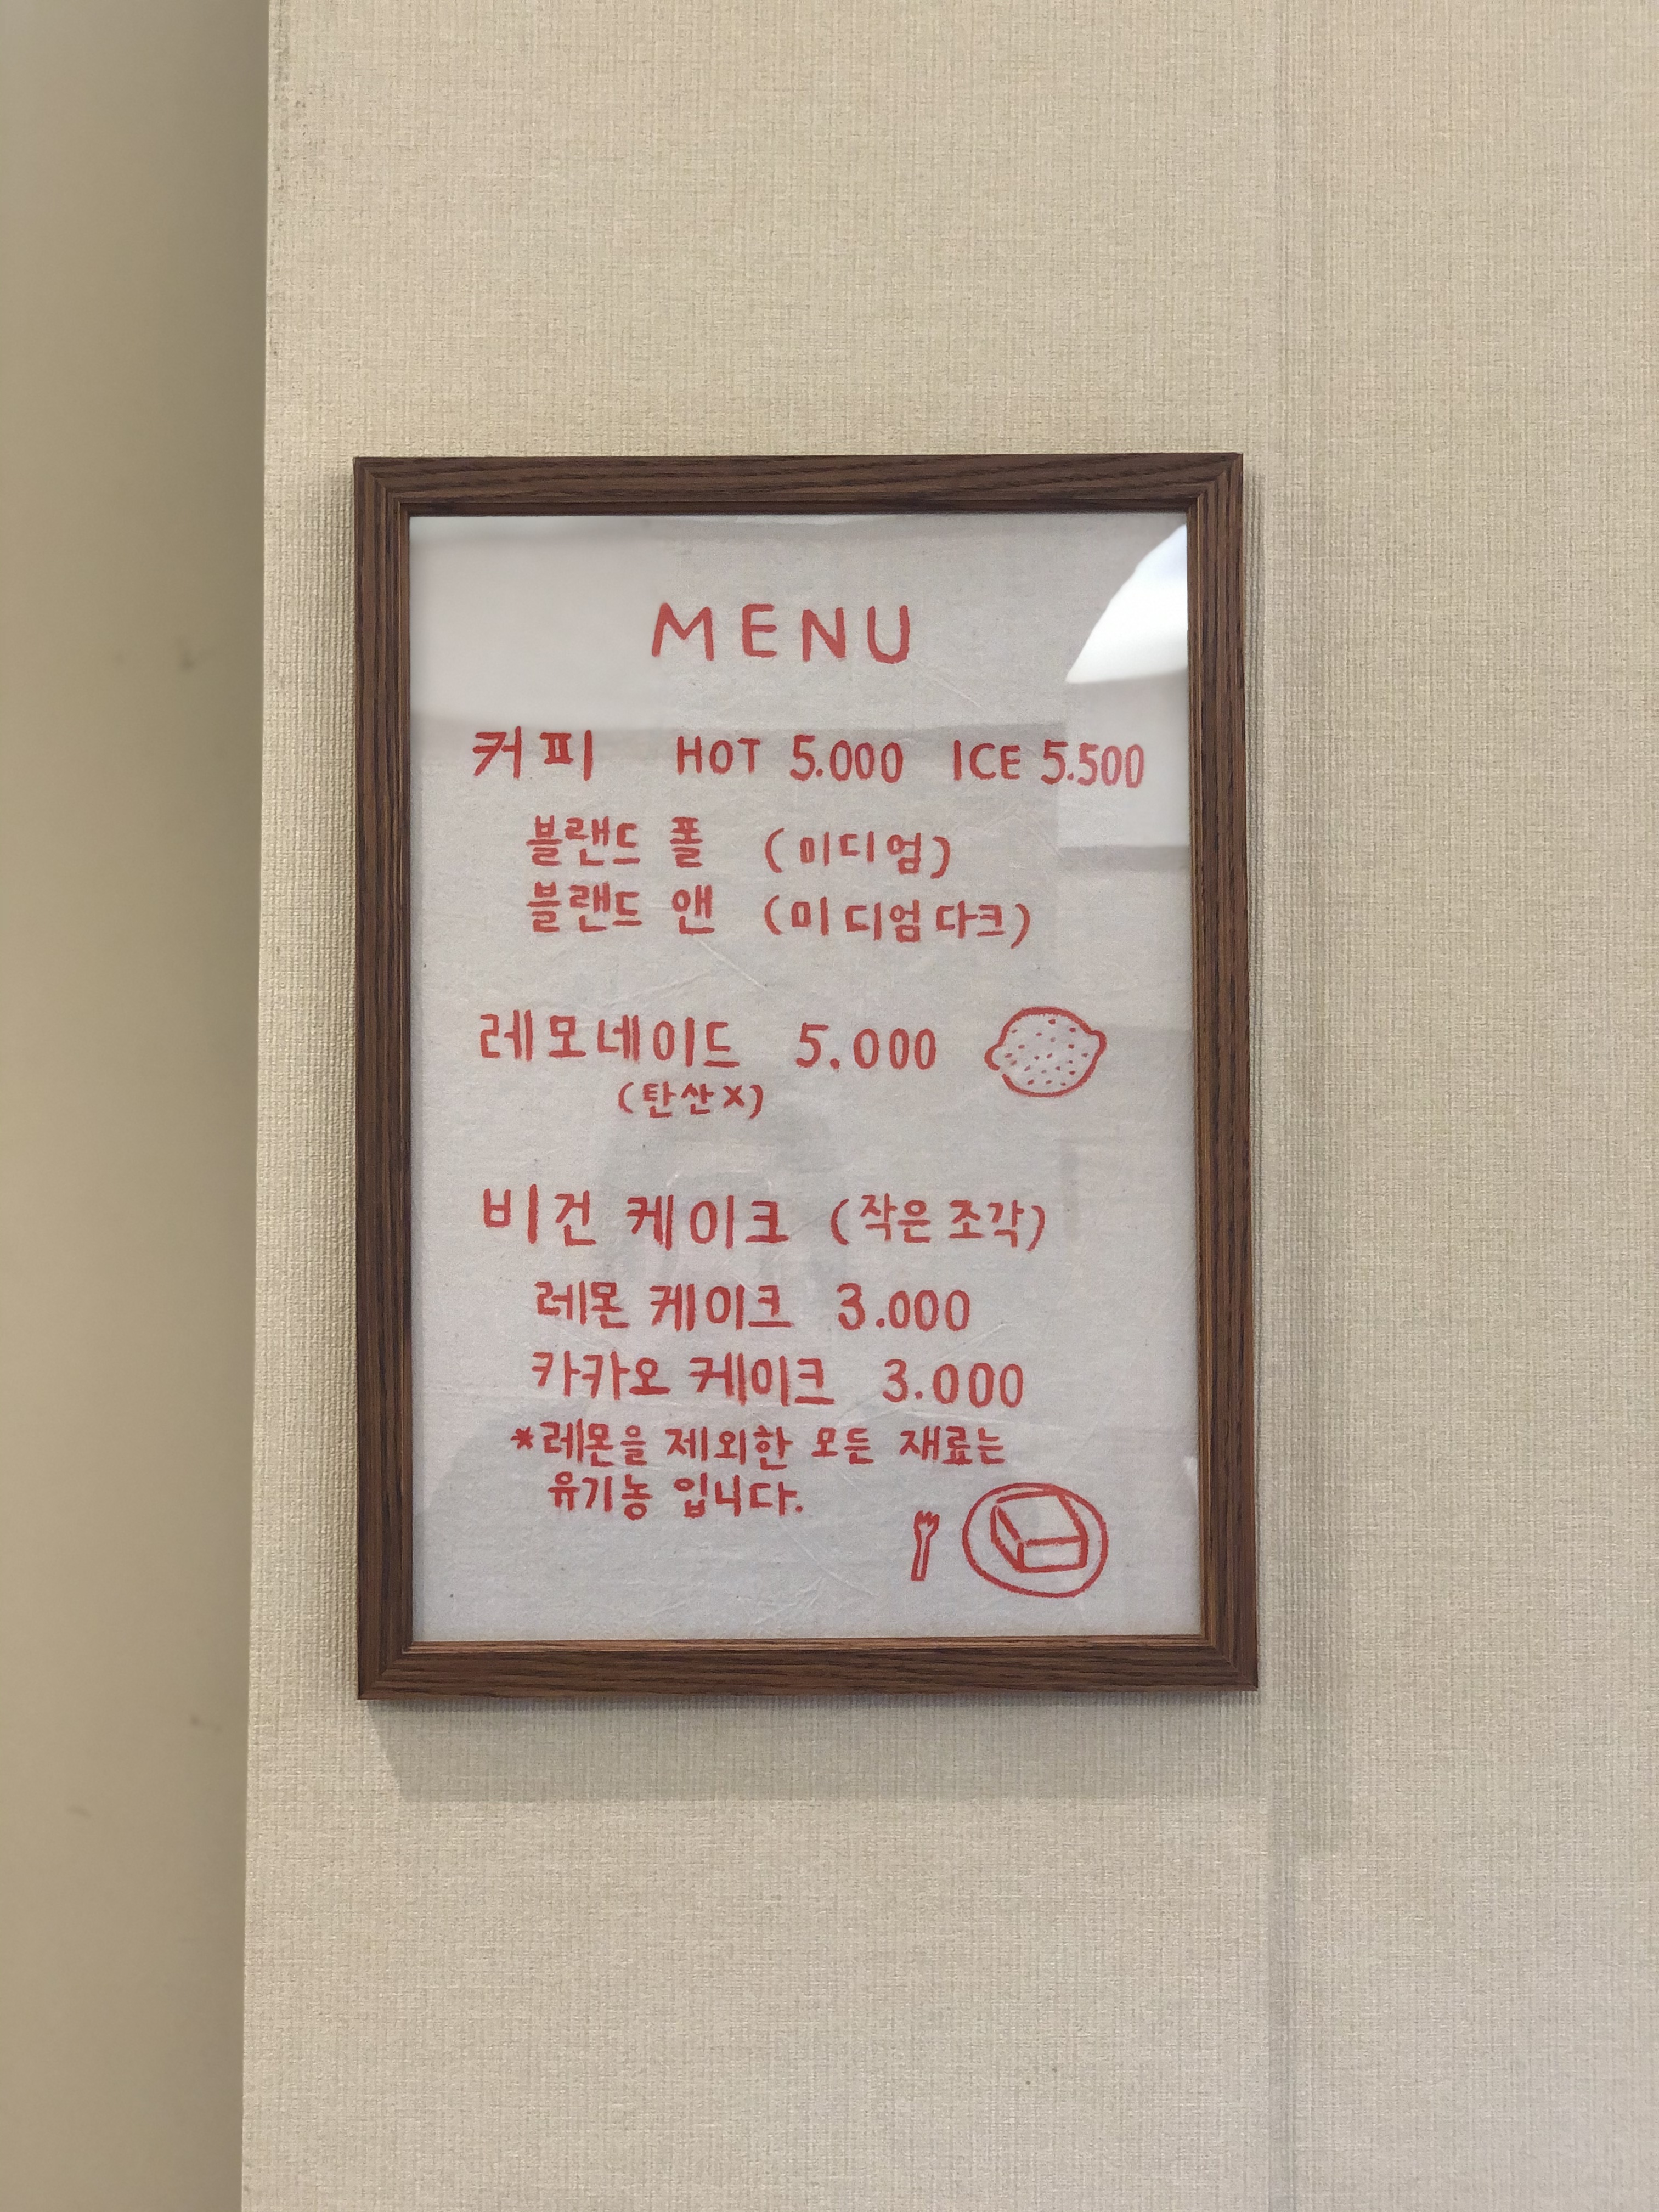 MENU
커피 HOT 5.000 ICE 5.500
블랜드 폴 (미디엄)
블랜드 앤 (미디엄다크)
레모네이드 5.000
(탄산X)
비건 케이크 (작은 조각)
레몬 케이크 3.000
카카오 케이크 3.000
*레몬을 제외한 모든 재료는
유기농 입니다.